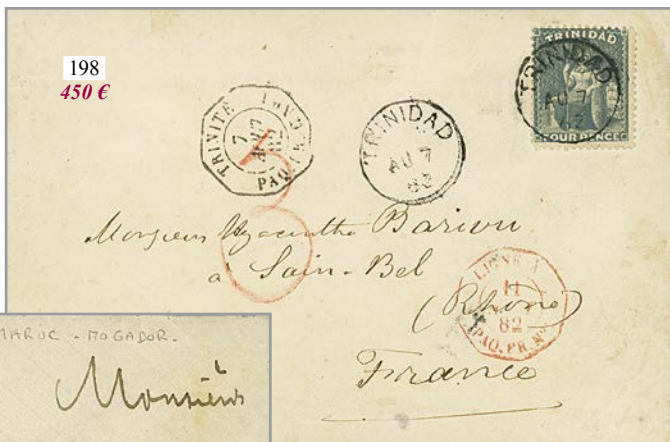 198
450 €
TRINIDAD
FOUR PENCE
TRINIDAD
AU 7
TRINITÉ
7
AOUT
82
PAQ. FR.
TRINIDAD
AU 7
82
Monsieur Hyacinthe Bariou
à Sain-Bel
(Rhône)
France
LIGNE A
11
82
PAQ. FR. N
MAROC - MOGADOR.
Monsieur